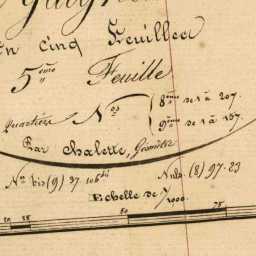 en cinq Feuilles
5ème Feuille
Quartiers Nos 8ème de 1 à 207.
9ème de 1 à 157.
Par Chalette, Géomètre
No bis (9) 37 Nota (8) 97. 23
Echelle de 1/1000.
20 25 50 75